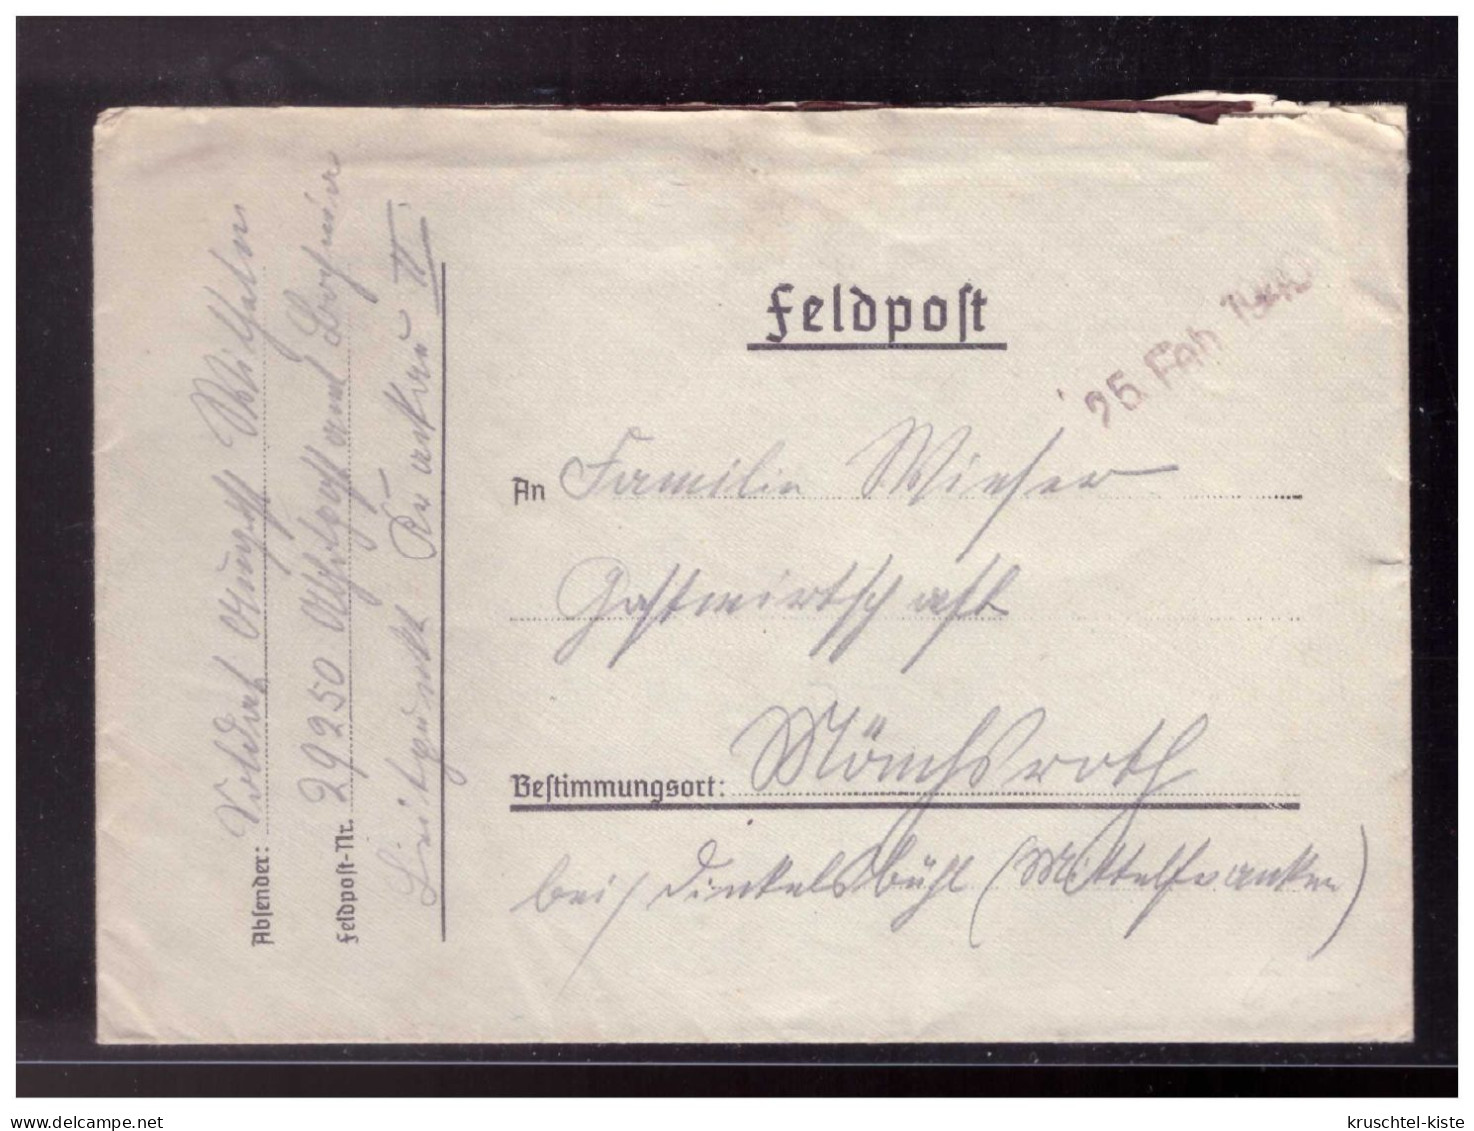 Feldpost
25. Feb. 1940
An Familie Wieser
Gastwirtschaft
Bestimmungsort: Mönchsroth
bei / Dinkelsbühl (Mittelfranken)
Absender: Soldat August Wilhelm
Feldpost-Nr. 29250
Leitpunkt
delcampe.net
kruschtel-kiste